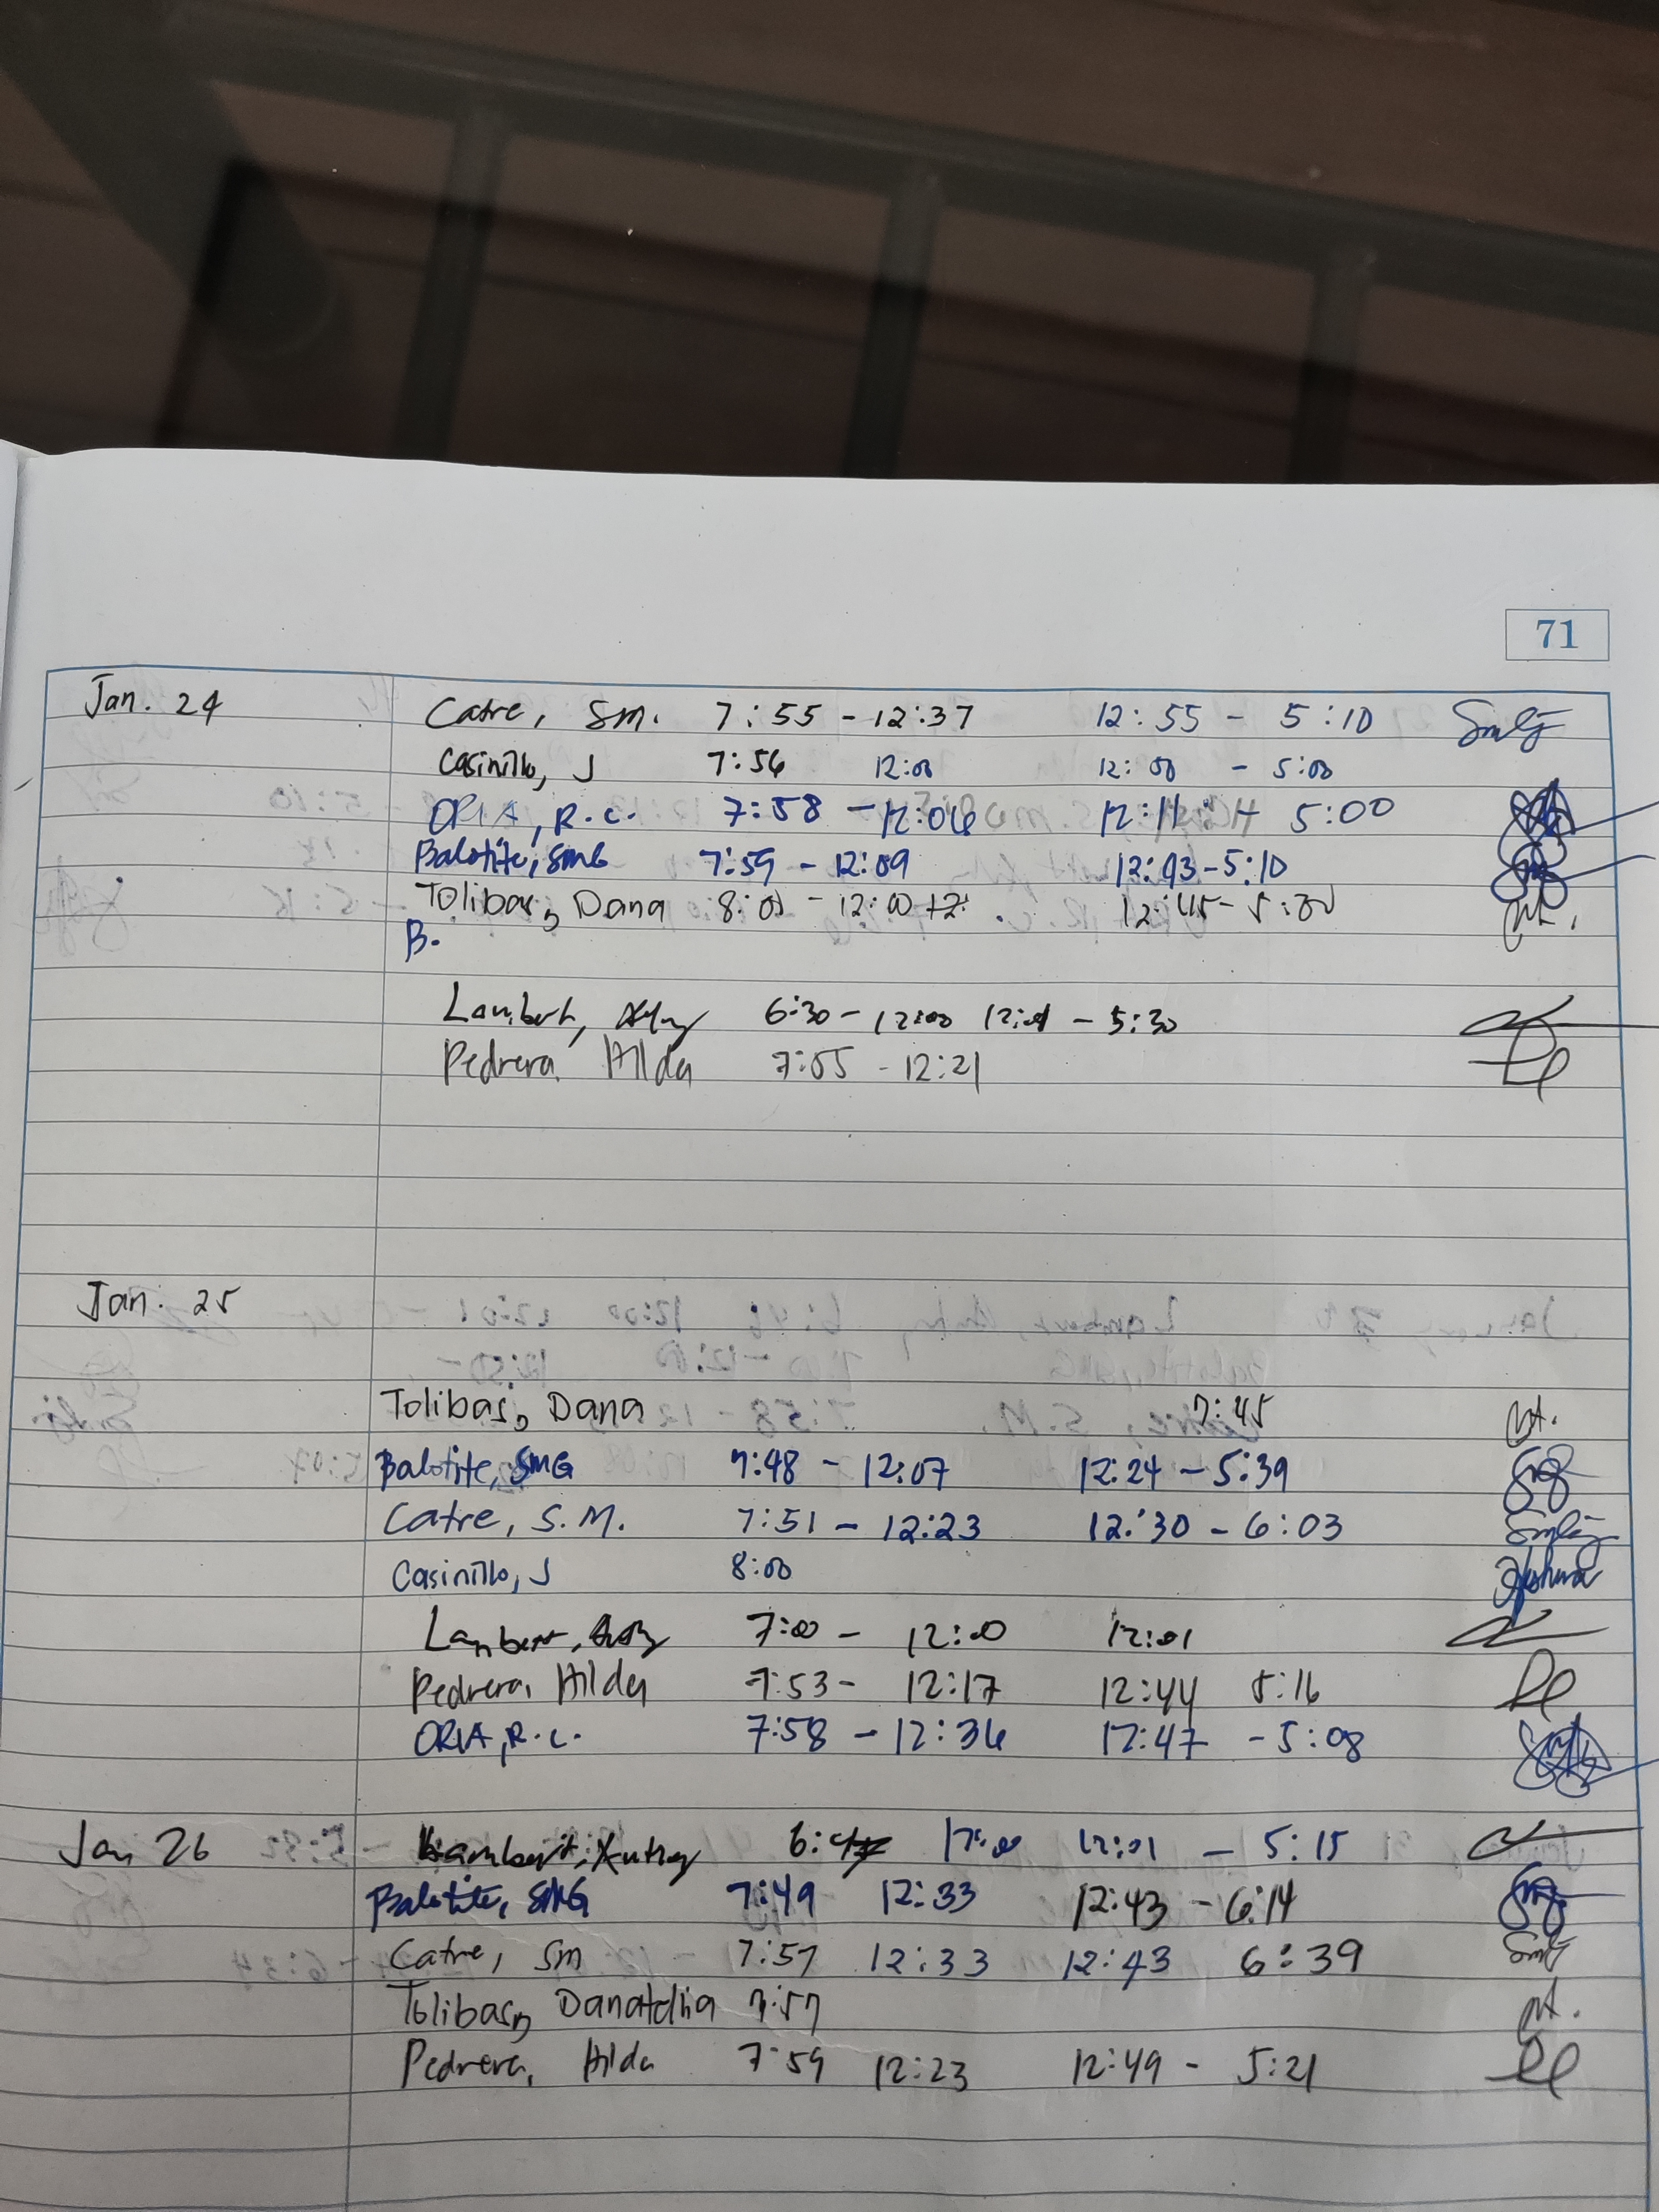 71
Jan. 24 Catre, Sm. 7:55 - 12:37 12:55 - 5:10
Casinillo, J 7:56 12:00 12:00 - 5:00
ORIA, R.C. 7:58 - 12:06 12:11 - 5:00
Balotite, SMG 7:59 - 12:09 12:43 - 5:10
Tolibas, Dana 8:00 - 12:00 12:45 - 5:00
B.
Lambert, 6:30 - 12:00 12:01 - 5:30
Pedrera, Hilda 7:55 - 12:21
Jan. 25
Tolibas, Dana 7:45
Balotite, SMG 7:48 - 12:07 12:24 - 5:39
Catre, S.M. 7:51 - 12:23 12:30 - 6:03
Casinillo, J 8:00
Lambert, 7:00 - 12:00 12:01
Pedrera, Hilda 7:53 - 12:17 12:44 5:16
ORIA, R.C. 7:58 - 12:36 12:47 - 5:08
Jan 26 Lambert, 12:00 12:01 - 5:15
Balotite, SMG 7:49 12:33 12:43 - 6:14
Catre, Sm 7:57 12:33 12:43 6:39
Tolibas, 7:57
Pedrera, Hilda 7:59 12:23 12:49 - 5:21